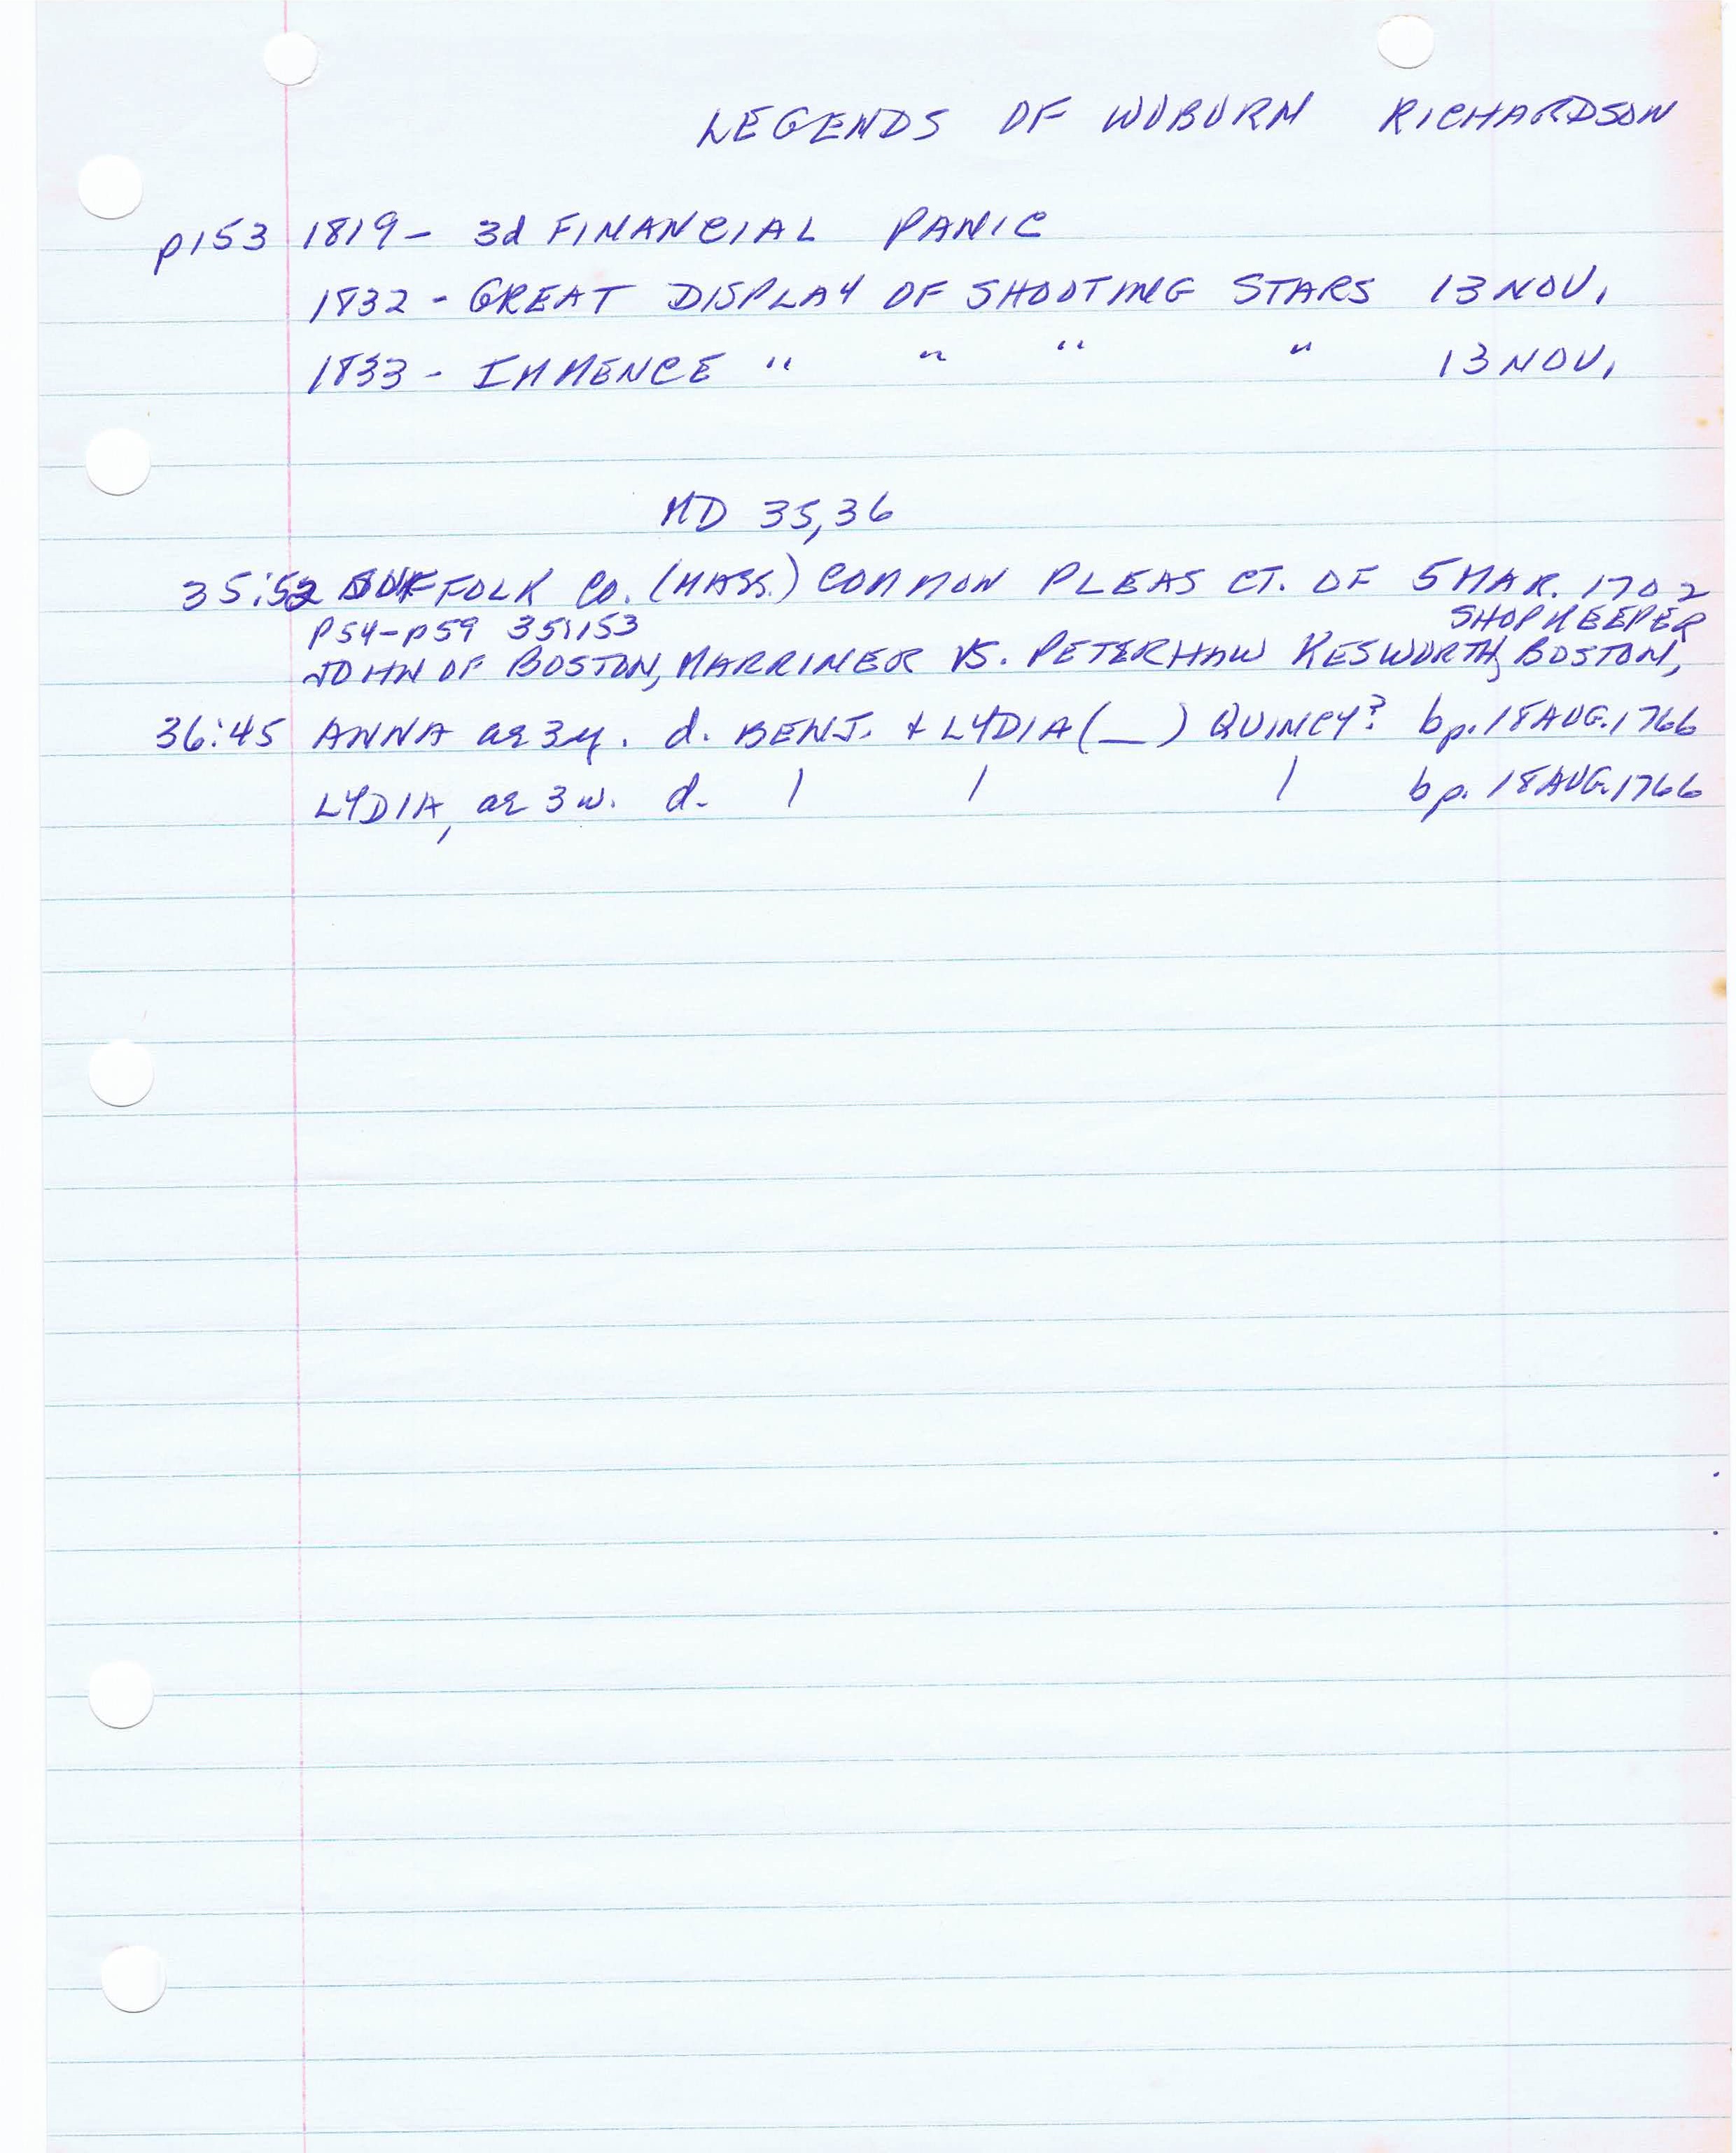 LEGENDS OF WOBURN RICHARDSON
p153 1819- 3d FINANCIAL PANIC
1832 - GREAT DISPLAY OF SHOOTING STARS 13 NOV.
1833 - IMMENCE " " " " 13 NOV.
MD 35,36
35:52 SUFFOLK CO. (MASS.) COMMON PLEAS CT. OF 5 MAR. 1702
P54-P59 35:153 SHOPKEEPER
JOHN OF BOSTON, MARRINER VS. PETER HAW KESWORTH, BOSTON,
36:45 ANNA ae 3y. d. BENJ. + LYDIA (_) QUINCY? bp. 18 AUG. 1766
LYDIA, ae 3w. d. | | | bp. 18 AUG. 1766